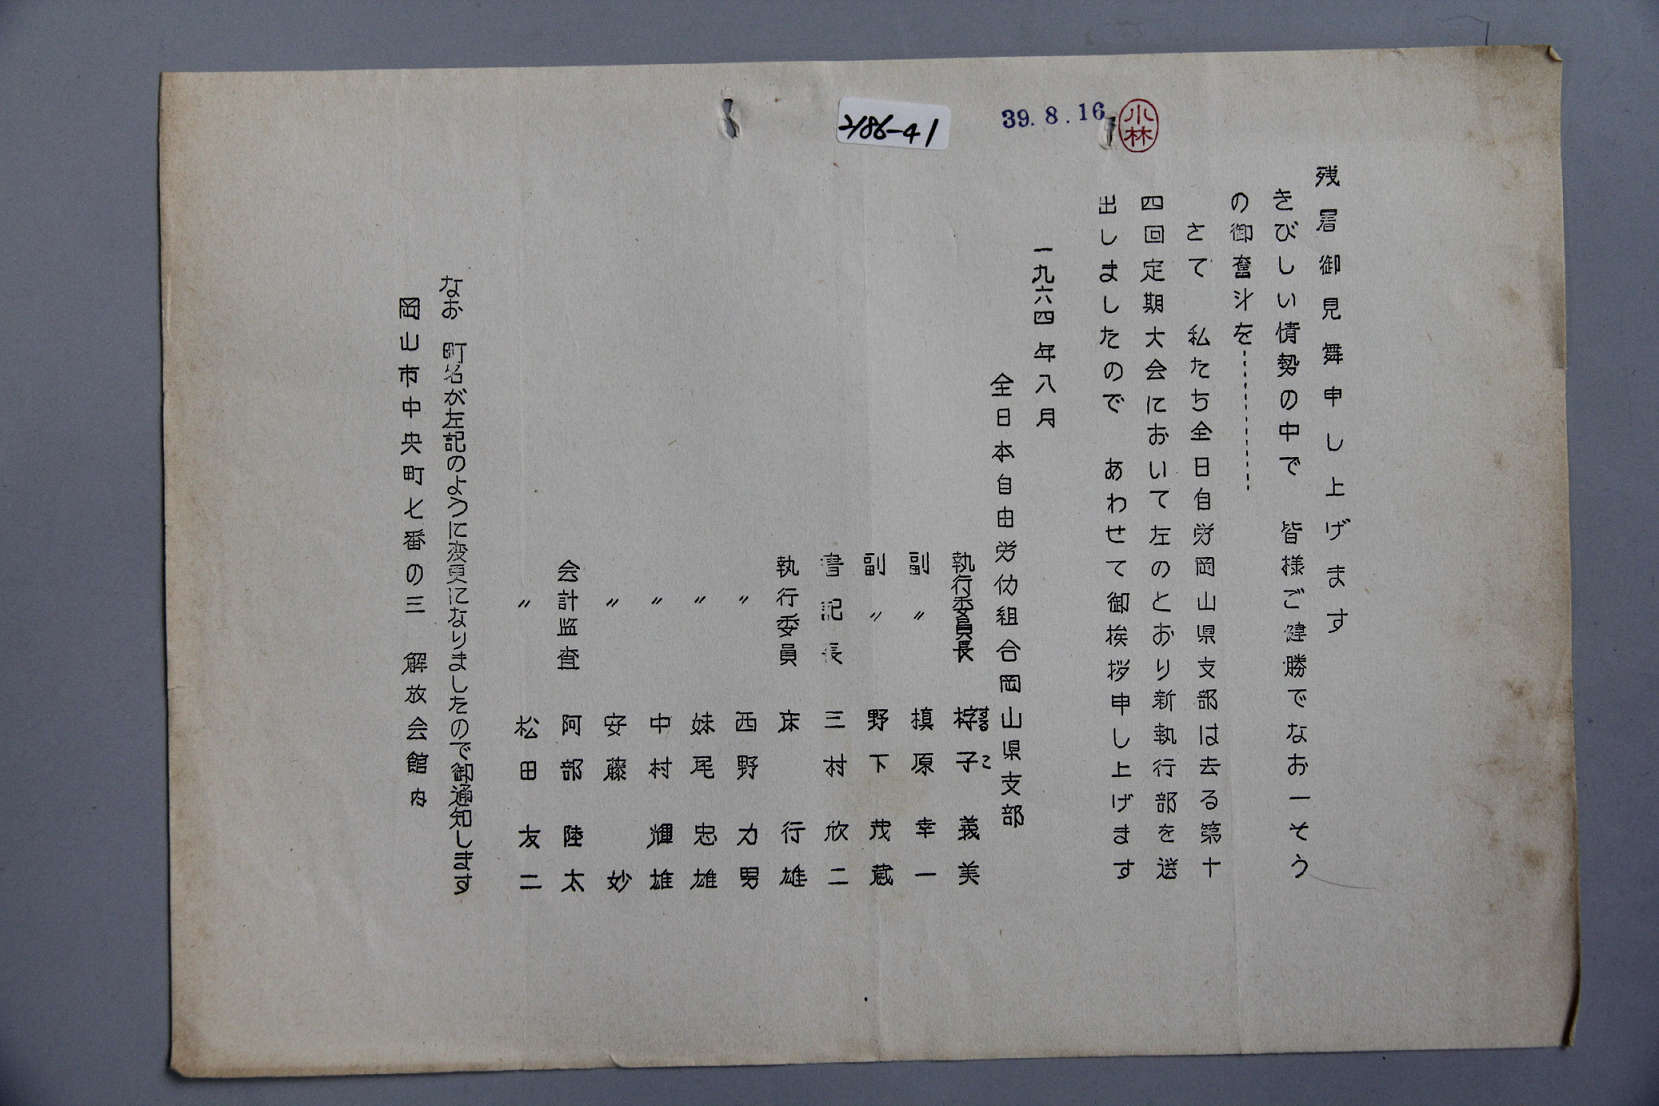 2186-41
39.8.16
小林
残暑御見舞申し上げます
きびしい情勢の中で　皆様ご健勝でなお一そう
の御奮斗を………
さて　私たち全日自労岡山県支部は去る第十
四回定期大会において左のとおり新執行部を選
出しましたので　あわせて御挨拶申し上げます
一九六四年八月
全日本自由労仂組合岡山県支部
執行委員長　義美
副　〃　槙原　幸一
副　〃　野下　茂蔵
書記長　三村　欣二
執行委員　床　行雄
〃　西野　力男
〃　妹尾　忠雄
〃　中村　輝雄
〃　安藤　妙
会計監査　阿部　陸太
〃　松田　友二
なお　町名が左記のように変更になりましたので御通知します
岡山市中央町七番の三　解放会館内